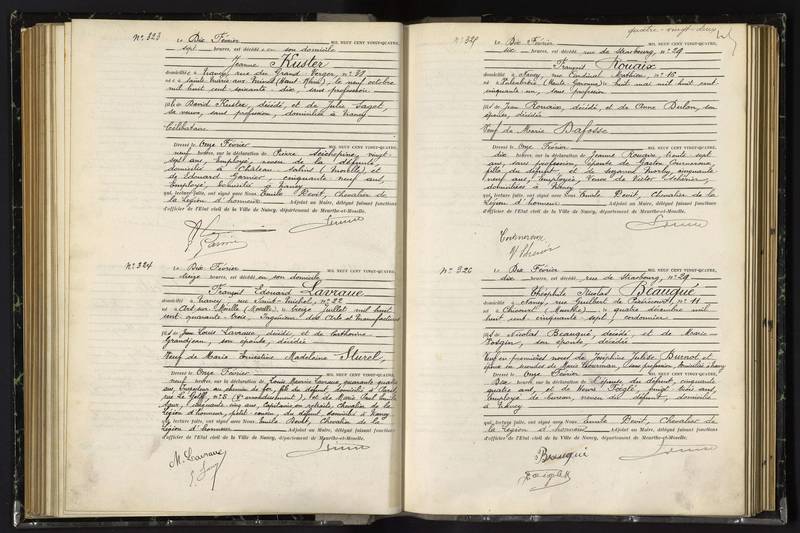 N° 323
Le Dix Février MIL NEUF CENT VINGT-QUATRE,
sept heures, est décédée en son domicile
Jeanne Kusler
domiciliée à Nancy, rue du Grand Verger, n° 39
née à Sainte Marie aux Mines (Haut-Rhin), le neuf octobre
mil huit cent soixante-dix, sans profession
fille de David Kusler, décédé, et de Julie Sagot,
sa veuve, sans profession, domiciliée à Nancy
Célibataire
Dressé le Onze Février MIL NEUF CENT VINGT-QUATRE,
neuf heures, sur la déclaration de Pierre vingt
sept ans, employé, neveu de la défunte,
domicilié à Château-Salins (Moselle) et
de Edouard Garnier, cinquante neuf ans
employé, domicilié à Nancy
qui, lecture faite, ont signé avec Nous Emile Devit, Chevalier de
la Légion d'honneur Adjoint au Maire, délégué faisant fonctions
d'officier de l'Etat civil de la Ville de Nancy, département de Meurthe-et-Moselle.
N° 324
Le Dix Février MIL NEUF CENT VINGT-QUATRE,
treize heures, est décédé en son domicile
François Edouard Lavraue
domicilié à Nancy rue Saint-Michel, n° 22
né à Ars-sur-Moselle (Moselle) le treize juillet mil huit
cent quarante trois, Ingénieur des Arts et Manufactures
fils de Jean Louis Lavraue, décédé, et de Catherine
Grandjean, son épouse, décédée
Veuf de Marie Ernestine Madeleine Sturel
Dressé le Onze Février MIL NEUF CENT VINGT-QUATRE,
neuf heures, sur la déclaration de Louis Maurice Lavraue, quarante quatre
ans, au chemin de fer, fils du défunt, domicilié à Paris
rue n° 8 arrondissement), et de Marie Paul Emile
cinquante cinq ans, Capitaine en retraite, Chevalier de la
Légion d'honneur, petit cousin du défunt, domicilié à Nancy
qui, lecture faite, ont signé avec Nous Emile Devit, Chevalier de la
Légion d'honneur Adjoint au Maire, délégué faisant fonctions
d'officier de l'Etat civil de la Ville de Nancy, département de Meurthe-et-Moselle.
M. Lavraue
quatre-vingt-deux
N° 325
Le Dix Février MIL NEUF CENT VINGT-QUATRE,
dix heures, est décédé rue de Strasbourg, n° 29
François Rouaix
domicilié à Nancy, rue Cardinal Mathieu, n° 16
né à (Haute Garonne) le huit mai mil huit cent
cinquante un, sans profession
fils de Jean Rouaix, décédé, et de Anne son
épouse, décédée
Veuf de Marie Dafosse
Dressé le Onze Février MIL NEUF CENT VINGT-QUATRE,
dix heures, sur la déclaration de Jeanne Rouaix, trente sept
ans, sans profession, épouse de Gaston
fille du défunt, et de cinquante
neuf ans, employée, Veuve de Victor
domiciliées à Nancy
qui, lecture faite, ont signé avec Nous Emile Devit, Chevalier de la
Légion d'honneur Adjoint au Maire, délégué faisant fonctions
d'officier de l'Etat civil de la Ville de Nancy, département de Meurthe-et-Moselle.
N° 326
Le Dix Février MIL NEUF CENT VINGT-QUATRE,
dix heures, est décédé rue de Strasbourg, n° 29
Théophile Nicolas Beauqué
domicilié à Nancy, rue Guilbert de Pixérécourt, n° 11
né à Chicourt (Meurthe) le quatre décembre mil
huit cent cinquante sept, cordonnier
fils de Nicolas Beauqué, décédé, et de Marie
son épouse, décédée
Veuf en premières noces de Joséphine Julise Burnot et
époux en secondes de Marie sans profession, domiciliée à Nancy
Dressé le Onze Février MIL NEUF CENT VINGT-QUATRE,
Dix heures, sur la déclaration de l'épouse du défunt, cinquante
quatre ans, et de Henri vingt trois ans,
employé de bureau, neveu du défunt, domicilié
à Nancy
qui, lecture faite, ont signé avec Nous Emile Devit, Chevalier de
la Légion d'honneur Adjoint au Maire, délégué faisant fonctions
d'officier de l'Etat civil de la Ville de Nancy, département de Meurthe-et-Moselle.
Beauqué